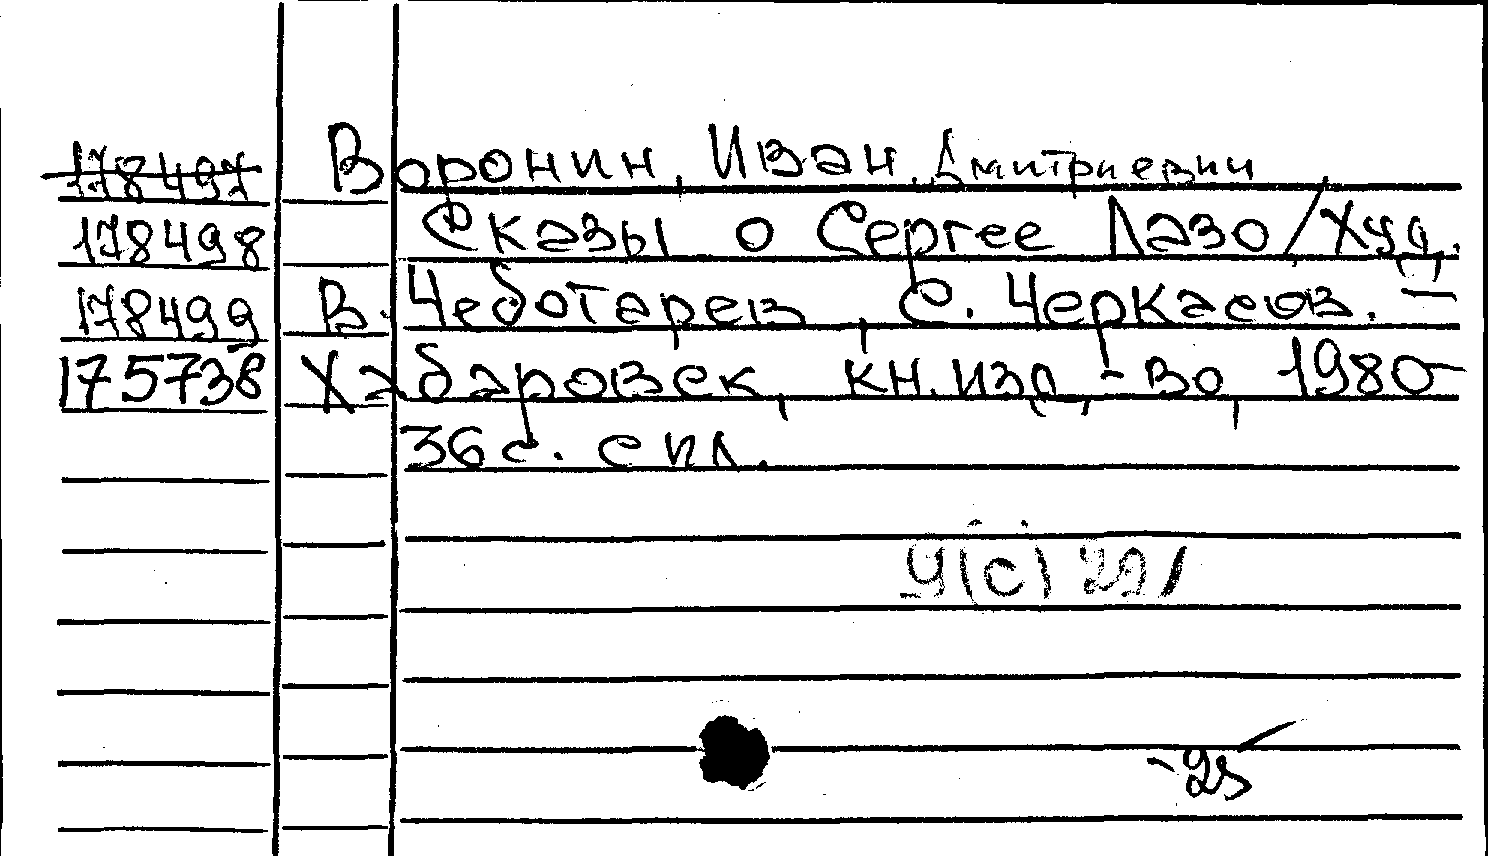 178497 Воронин, Иван Дмитриевич
178498 Сказы о Сергее Лазо/Худ.
178499 В. Чеботарев, С. Черкасов. –
175738 Хабаровск, кн. изд-во, 1980-
36 с. с ил.
-25